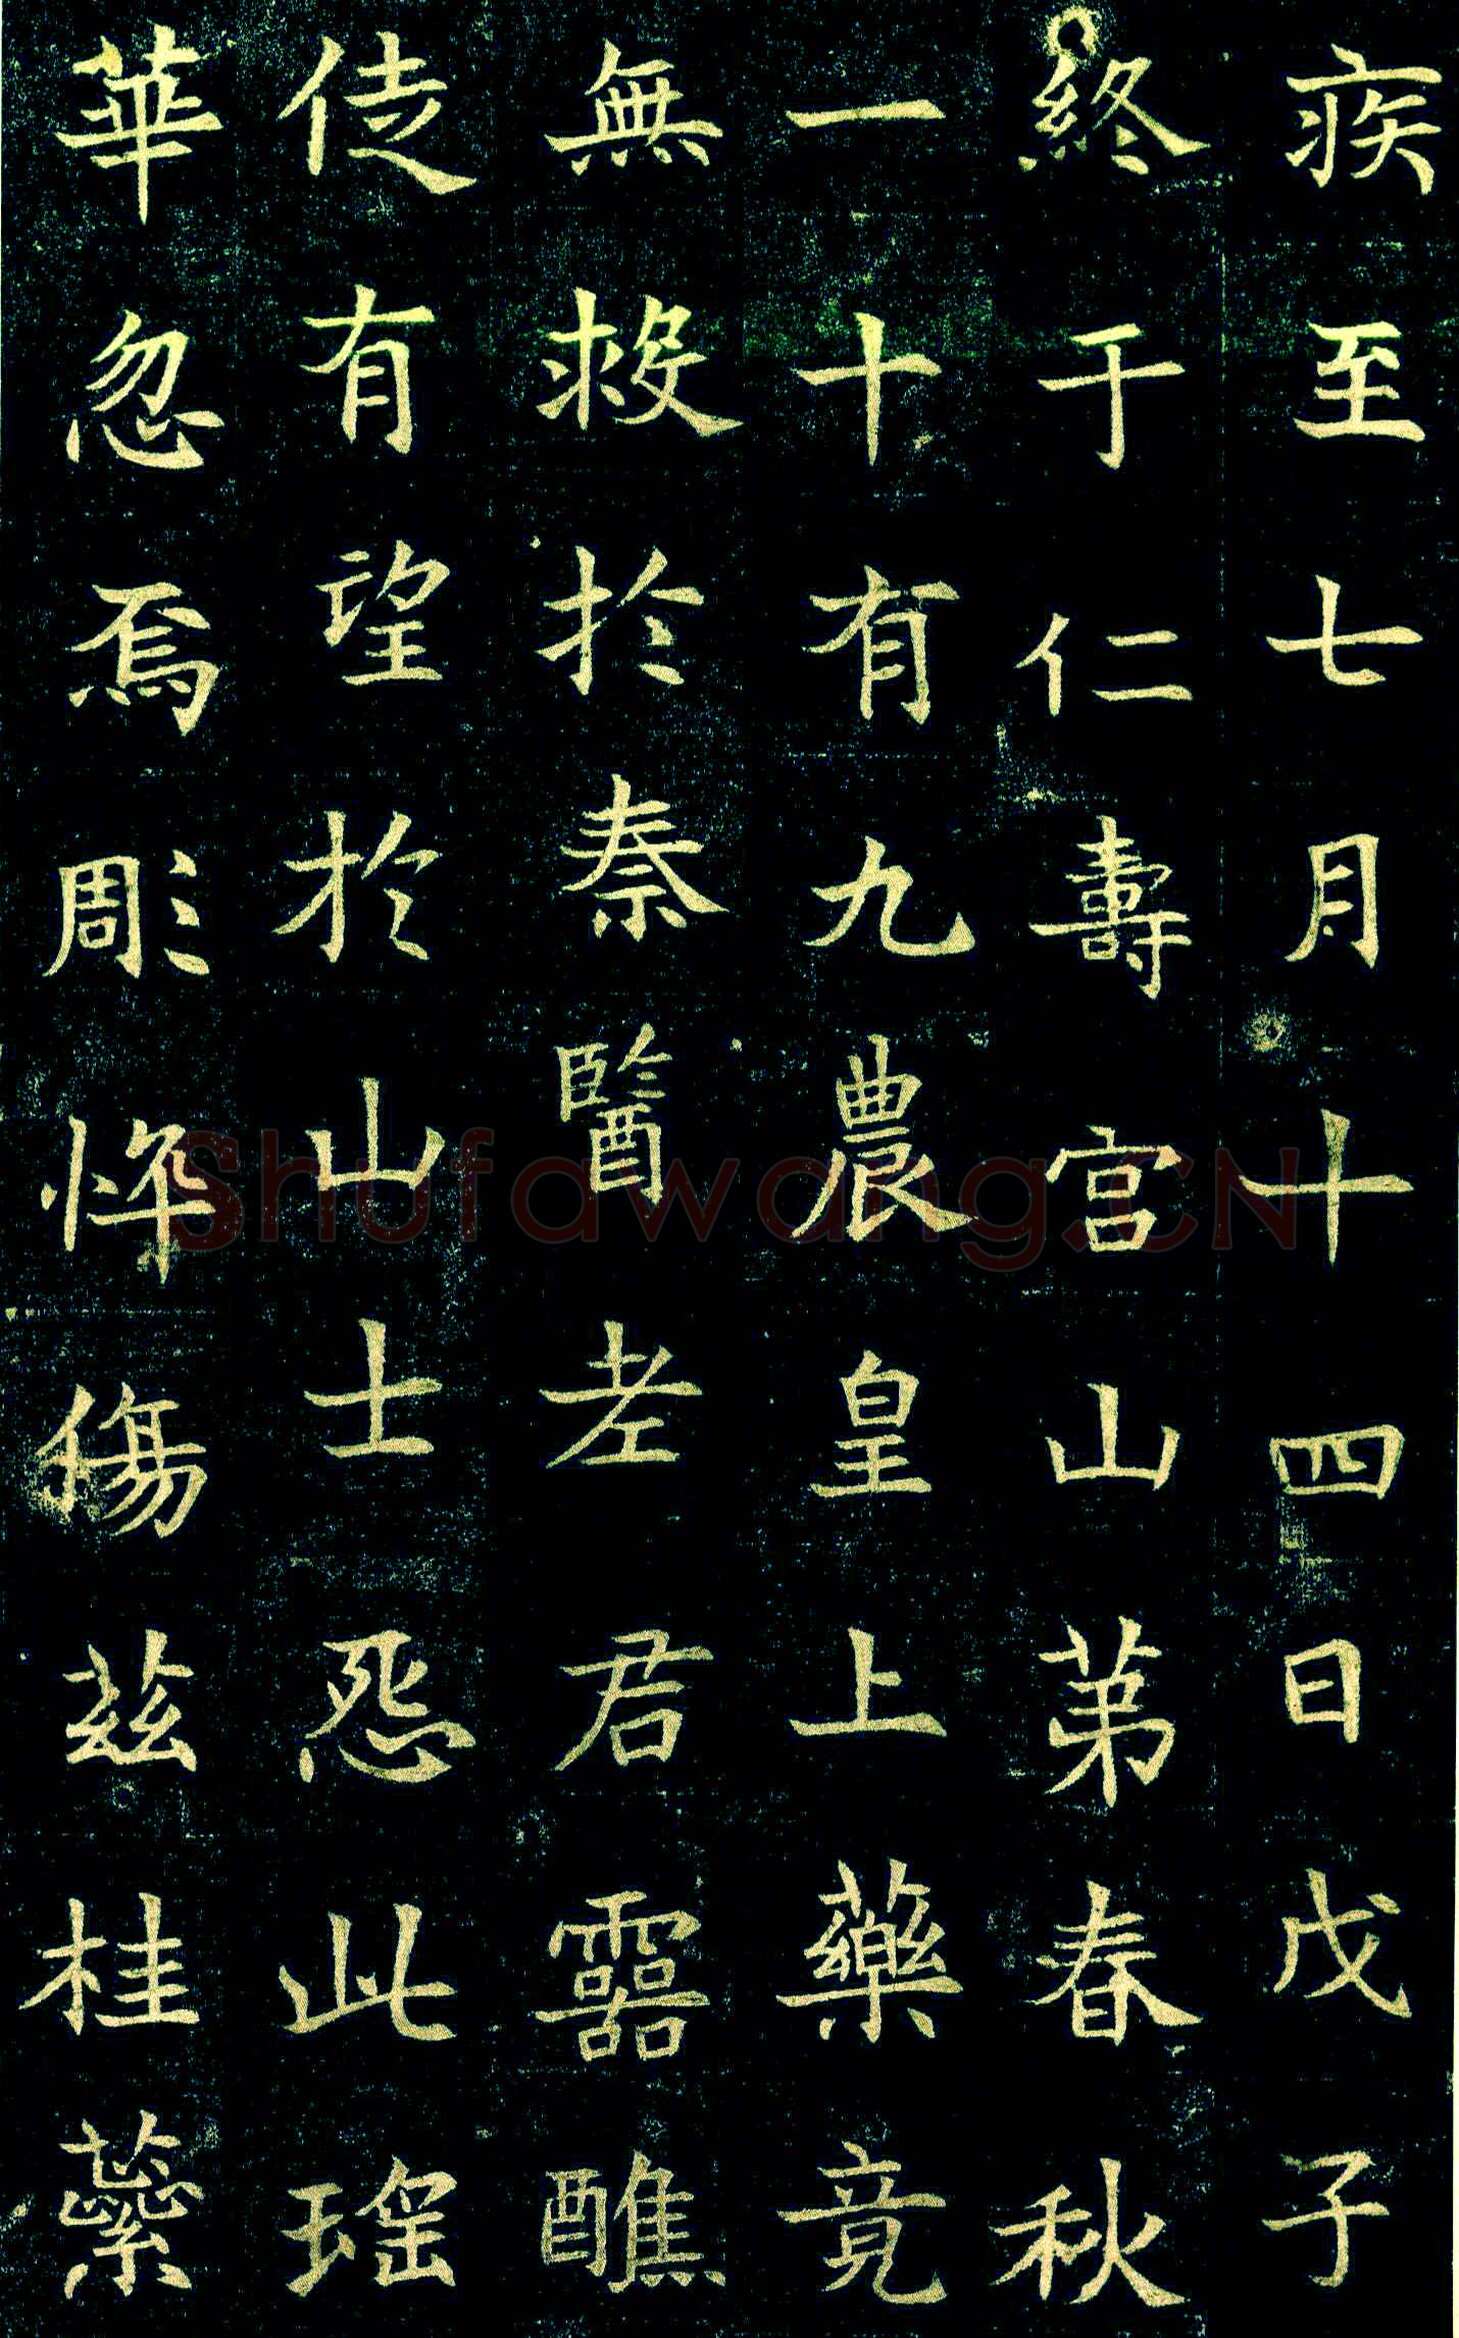 疾至七月十四日戊子
終于仁壽宮山苐春秋
一十有九農皇上藥竟
無救於秦醫老君靈醮
徒有望於山士怨此瑤
華忽焉彫悴傷茲桂蘂
Shufawang.CN